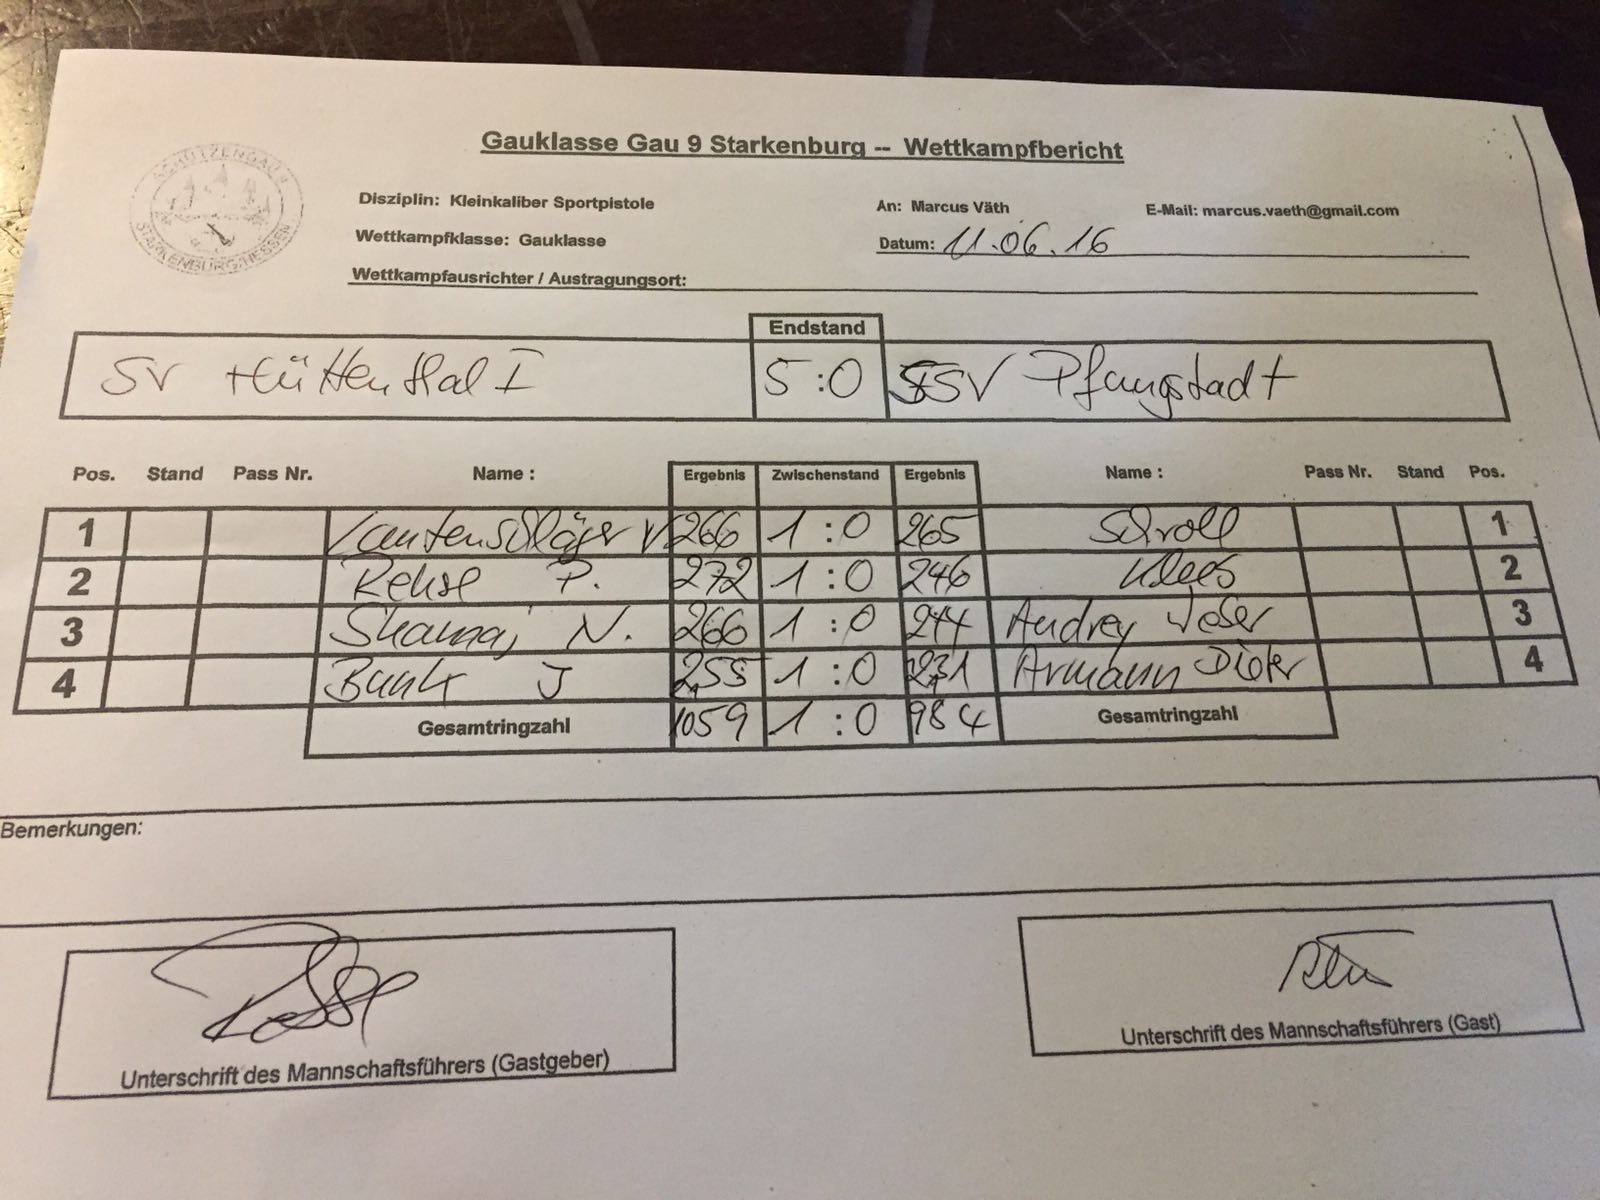 Gauklasse Gau 9 Starkenburg -- Wettkampfbericht
SCHÜTZENGAU
STARKENBURG/HESSEN
Disziplin: Kleinkaliber Sportpistole An: Marcus Väth E-Mail: marcus.vaeth@gmail.com
Wettkampfklasse: Gauklasse Datum: 11.06.16
Wettkampfausrichter / Austragungsort:
Endstand
SV Hüttenthal I 5:0 SSV Pfungstadt
Pos. Stand Pass Nr. Name : Ergebnis Zwischenstand Ergebnis Name : Pass Nr. Stand Pos.
1 Lautenschläger V 266 1:0 265 Schroll 1
2 P. 272 1:0 246 Klees 2
3 N. 266 1:0 244 Audrey 3
4 J 255 1:0 231 Armann Dieter 4
Gesamtringzahl 1059 1:0 984 Gesamtringzahl
Bemerkungen:
Unterschrift des Mannschaftsführers (Gastgeber) Unterschrift des Mannschaftsführers (Gast)